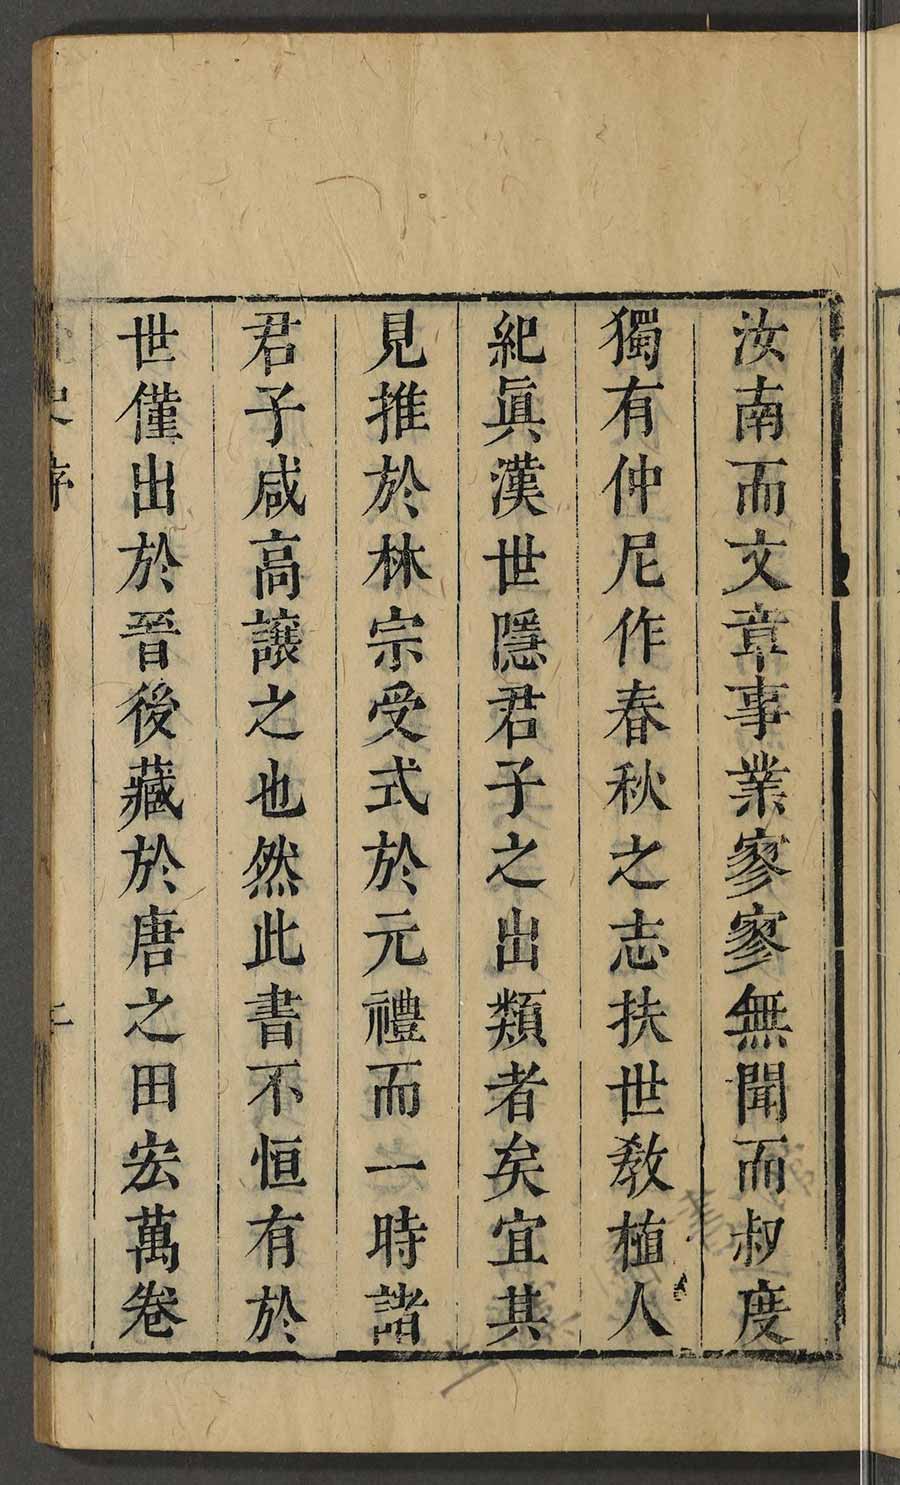 汝南而文章事業寥寥無聞而叔度
獨有仲尼作春秋之志扶世教植人
紀眞漢世隱君子之出類者矣宜其
見推於林宗受式於元禮而一時諸
君子咸高讓之也然此書不恒有於
世僅出於晉後藏於唐之田宏萬卷
史序